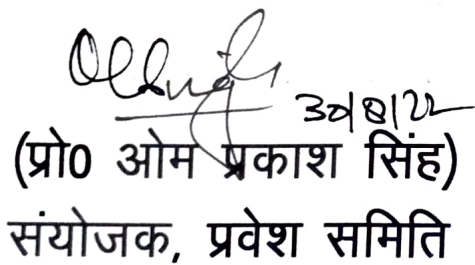 30/8/22
(प्रो0 ओम प्रकाश सिंह)
संयोजक, प्रवेश समिति